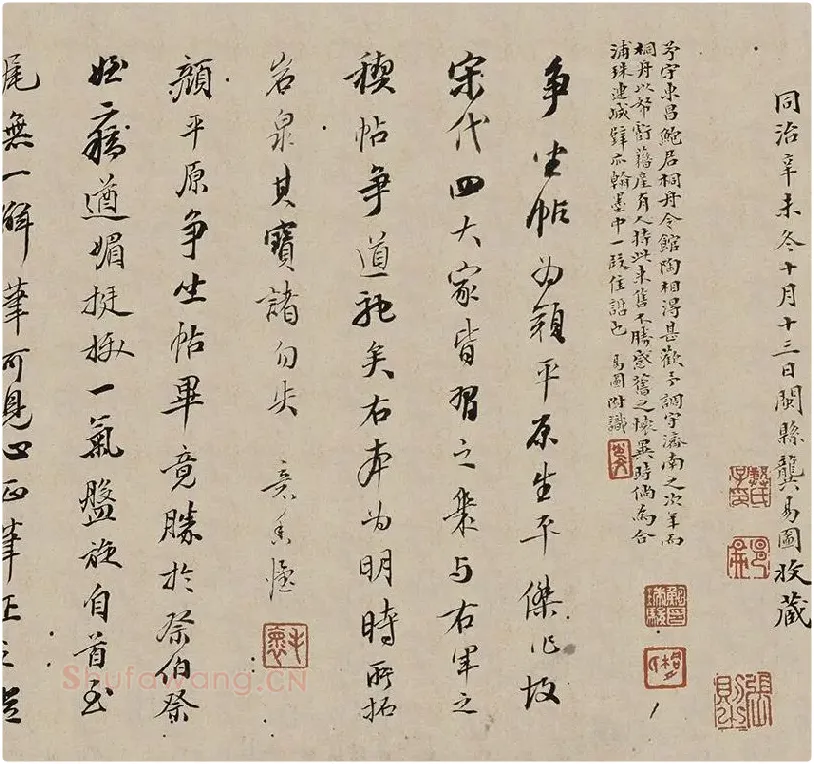 同治辛未冬十月十三日閩縣龔易圖收藏
予守東昌鮑居桐舟令館陶相得甚歡予調守濟南之次年而
桐舟以帑虧籍產有人持此來售不勝感舊之懷異時倘為合
浦珠連城璧亦翰墨中一段佳話也 易圖附識
爭坐帖為顏平原生平傑作故
宋代四大家皆習之幾与右軍之
禊帖爭道馳矣右本为明時所拓
岩泉其寶諸勿失
顏平原爭坐帖畢竟勝於祭伯祭
姪二稿遒媚挺拔一氣盤旋自首至
尾無一懈筆可見心正筆正之
Shufawang.CN